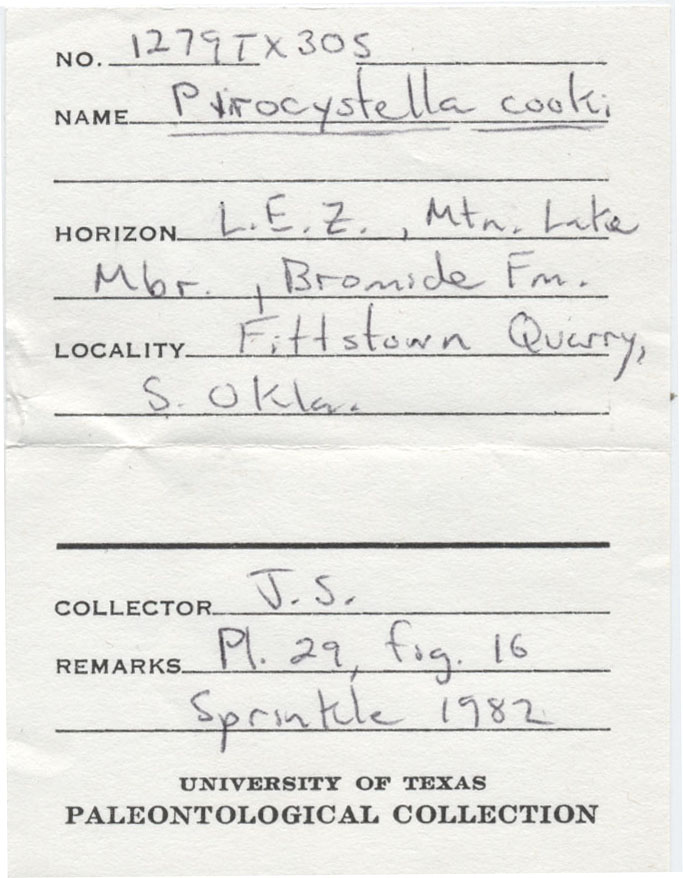 NO. 1279TX305
NAME Pyrocystella cooki
HORIZON L.E.Z., Mtn. Lake
Mbr., Bromide Fm.
LOCALITY Fittstown Quarry,
S. Okla.
COLLECTOR J.S.
REMARKS Pl. 29, fig. 16
Sprinkle 1982
UNIVERSITY OF TEXAS
PALEONTOLOGICAL COLLECTION